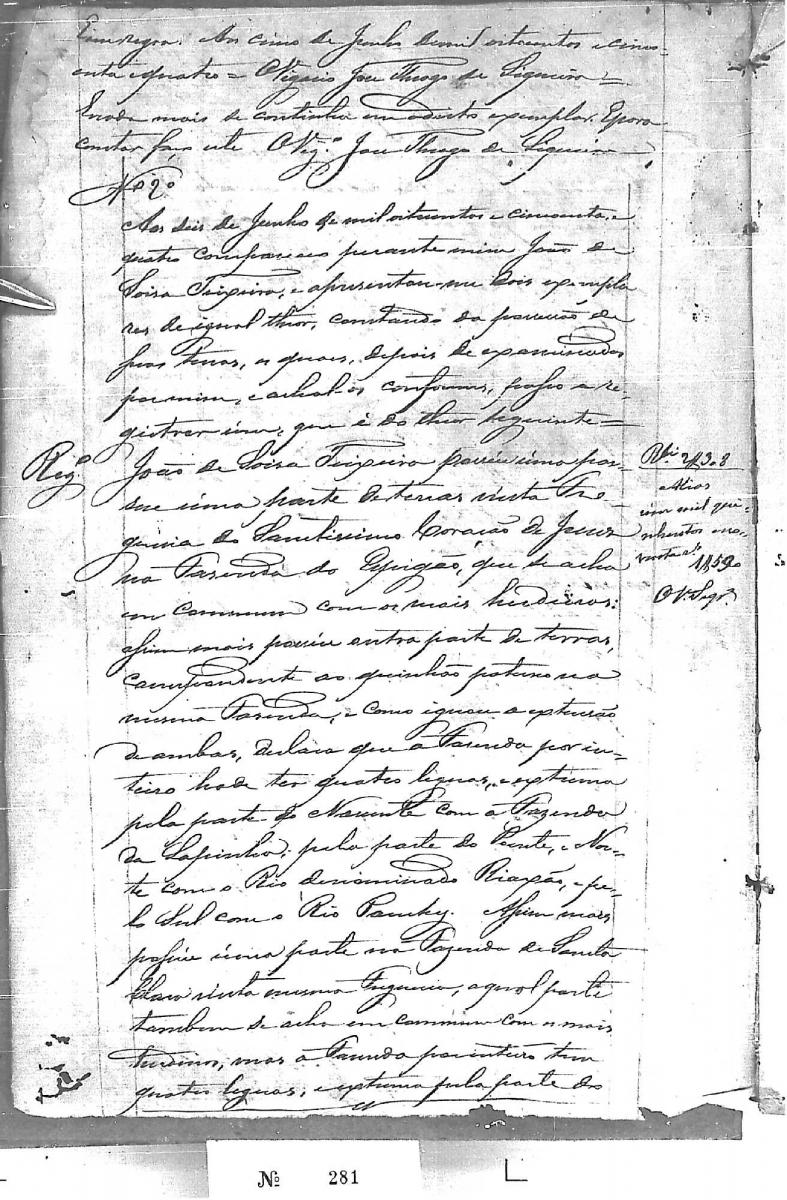 Aos cinco de Junho de mil oitocentos e cinco-
enta e quatro = O Vigario Jose Thiago de Siqueira =
E nada mais se continha em o dicto exemplar. E para
constar faço este O Vigº Jose Thiago de Siqueira
Nº 2º
Aos seis de Junho de mil oitocentos e cincoenta, e
quatro compareceo perante mim João de
Soisa Teixeira, e apresentou-me dois exempla
res de igual theor, constando da possessão de
suas terras, os quaes, depois de examinados
por mim, e achal-os conformes, passo a re-
gistrar um, que é do theor seguinte =
Regº
João de Soisa Teixeira possúe úma pos-
sue uma parte de terras nesta Fre
guezia do Santissimo Coração de Jesus
na Fazenda do Espigão, que se acha
em commum com os mais herdeiros:
assim mais possúe outra parte de terras,
correspondente ao quinhão paterno na
mesma Fazenda, e como ignora a extensão
de ambas, declara que a Fazenda por in-
teiro hade ter quatro leguas, e extrema
pela parte do Nascente com a Fazenda
da Lapinha; pela parte do Poente, e Nor-
te com o Rio denominado Riaxão, e pe-
lo Sul com o Rio Pacuhy. Assim mais
possúe úma parte na Fazenda de Sancta
Clara nesta mesma Freguezia, a qual parte
tambem se acha em commum com os mais
herdeiros, mas a Fazenda por inteiro tem
quatro leguas, e extrema pela parte do
mil qui-
nhentos e no-
venta
O V. Siqrª
Nº 281